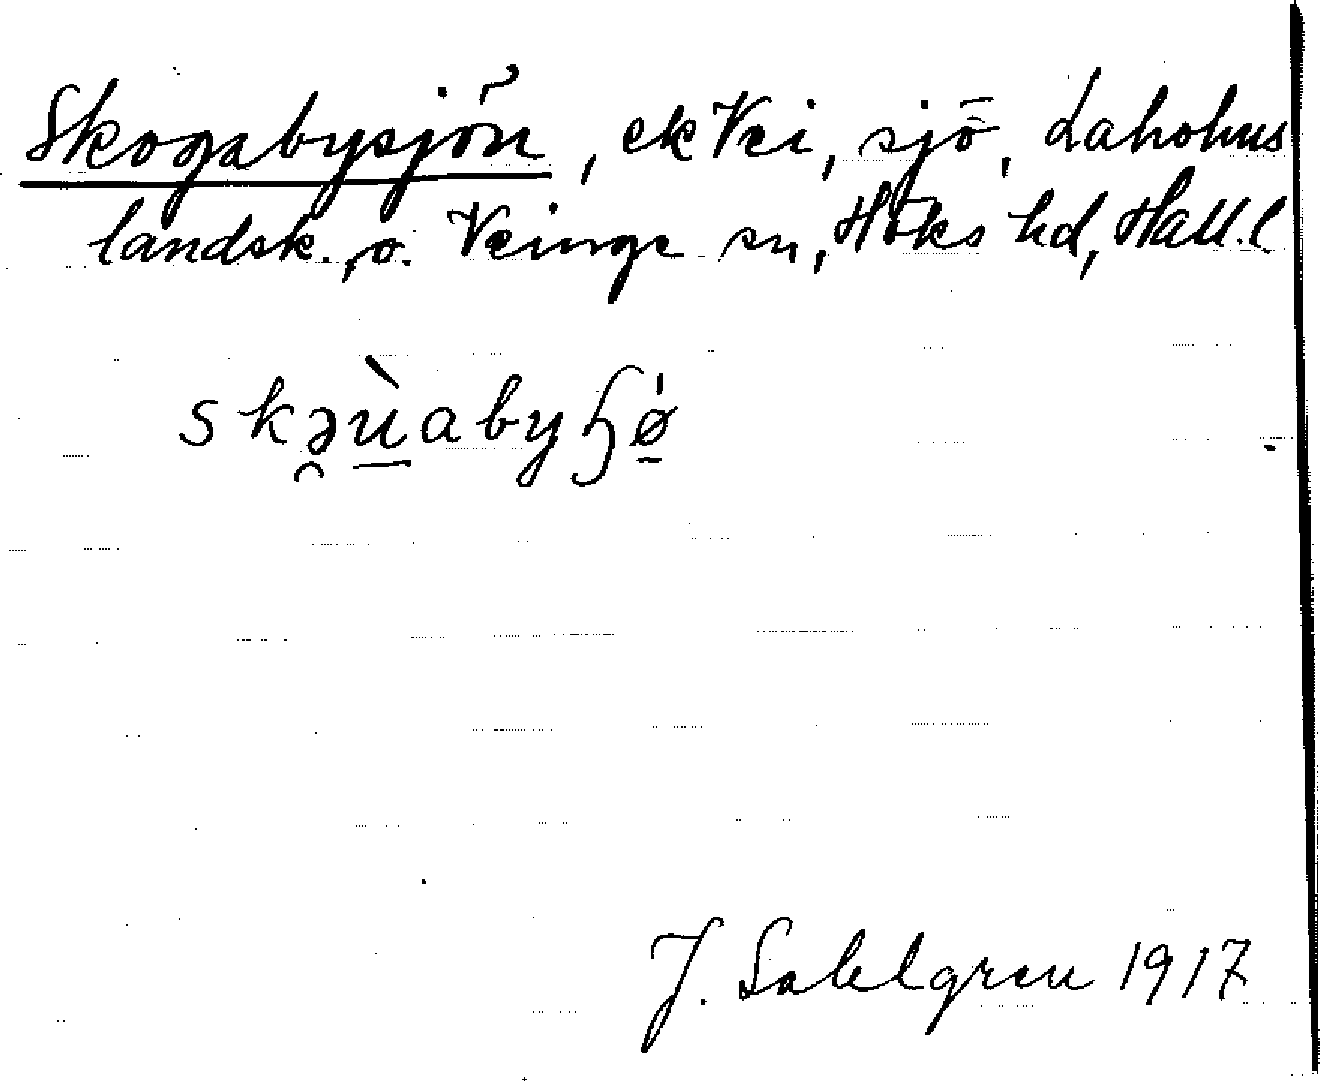 Skogabysjön, ek Vei, sjö, Laholms
landsk., o. Veinge sn, Höks hd, Hall. l
skə̯ùabyɧø̱
J. Sahlgren 1917